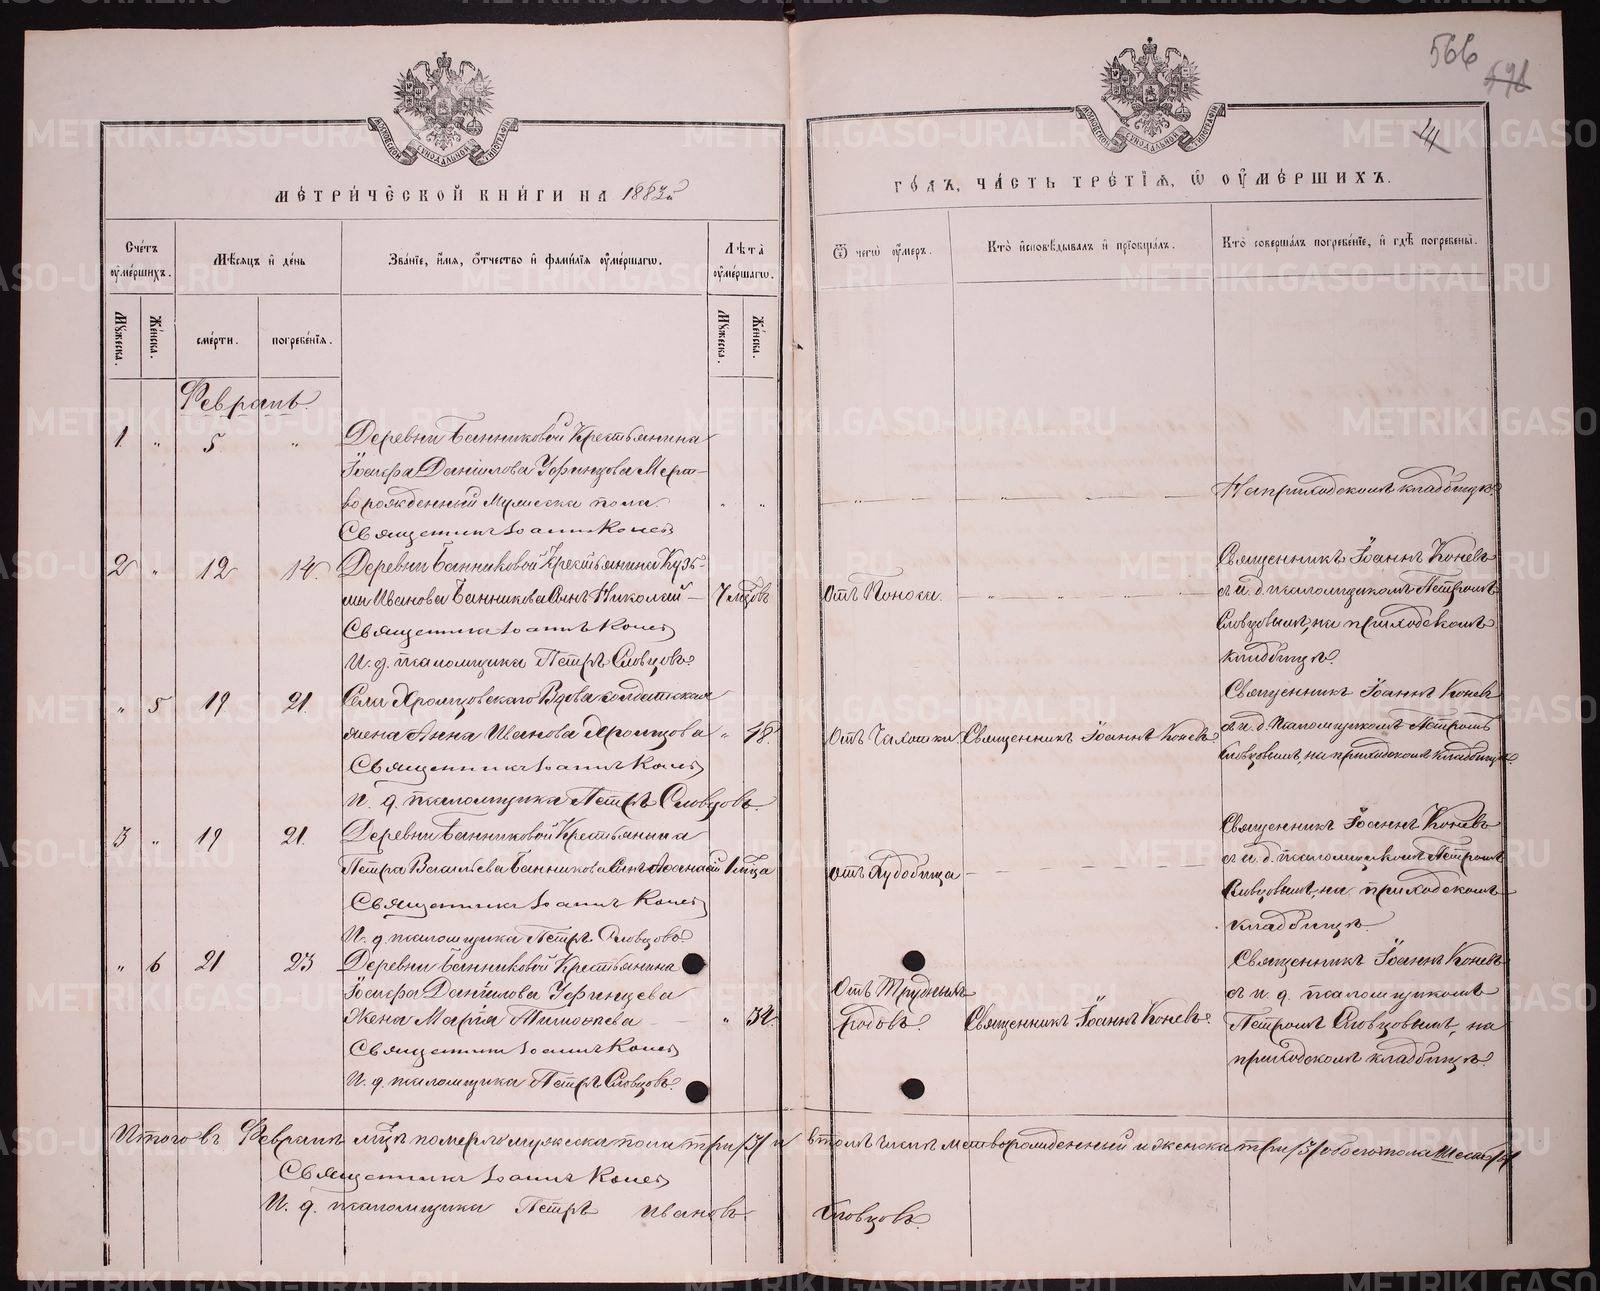 566
МЕТРИЧЕСКОЙ КНИГИ НА 1883й
ГОДЪ, ЧАСТЬ ТРЕТІЯ, Ѿ ОУМЕРШИХЪ.
Счетъ оумершихъ.
Мѣсяцъ и день
Званіе, имя, отчество и фамилія оумершагѡ.
Лѣта оумершагѡ.
Ѿ чегѡ оумеръ.
Кто исповѣдывалъ и пріобщалъ.
Кто совершалъ погребеніе, и гдѣ погребены.
Мужеска.
Женска.
смерти.
погребенія.
Мужеска.
Женска.
Февраль.
1 " 5 " Деревни Банниковой Крестьянина
Іосифа Данилова Уфинцова Мерт-
ворожденный Мужеска пола. " "
На приходскомъ кладбищѣ.
Священникъ Іоаннъ Коневъ
2 " 12 14. Деревни Банниковой Крестьянина Кузь-
мы Иванова Банникова сынъ Николай 7 мцовъ
Отъ Поноса.
Священникъ Іоаннъ Коневъ
И. д. псаломщика Петръ Словцовъ.
Священникъ Іоаннъ Коневъ
съ и. д. псаломщикомъ Петромъ
Словцовымъ, на приходскомъ
кладбищѣ.
" 5 19 21. Села Хромцовскаго Вдова солдатская
жена Анна Иванова Хромцова " 18.
Отъ Чахотки
Священникъ Іоаннъ Коневъ.
Священникъ Іоаннъ Коневъ
И. д. псаломщика Петръ Словцовъ
Священникъ Іоаннъ Коневъ
съ и. д. псаломщикомъ Петромъ
Словцовымъ, на приходскомъ кладбищѣ.
3 " 19 21. Деревни Банниковой Крестьянина
Петра Васильева Банникова сынъ Афанасій 1 мца
отъ Худобища
Священникъ Іоаннъ Коневъ
И. д. псаломщика Петръ Словцовъ
Священникъ Іоаннъ Коневъ
съ и. д. псаломщикомъ Петромъ
Словцовымъ, на приходскомъ
кладбищѣ.
" 6 21 23 Деревни Банниковой Крестьянина
Іосифа Данилова Уфинцева
Жена Марія Тимофѣева " 34.
Отъ Трудныхъ
родовъ.
Священникъ Іоаннъ Коневъ.
Священникъ Іоаннъ Коневъ
И. д. псаломщика Петръ Словцовъ.
Священникъ Іоаннъ Коневъ
съ и. д. псаломщикомъ
Петромъ Словцовымъ, на
приходскомъ кладбищѣ.
Итого въ Февралѣ мцѣ померло мужеска пола три /3/ и въ томъ числѣ мертворожденный и женска три /3/ обоего пола Шесть /6/
Священникъ Іоаннъ Коневъ
И. д. псаломщика Петръ Ивановъ Словцовъ.
METRIKI.GASO-URAL.RU